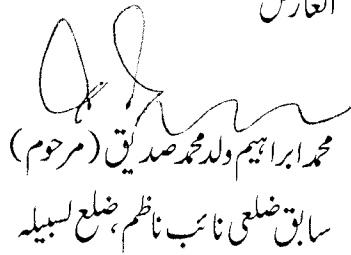 العارض
محمد ابراہیم ولد محمد صدیق (مرحوم)
سابق ضلعی نائب ناظم، ضلع لسبیلہ